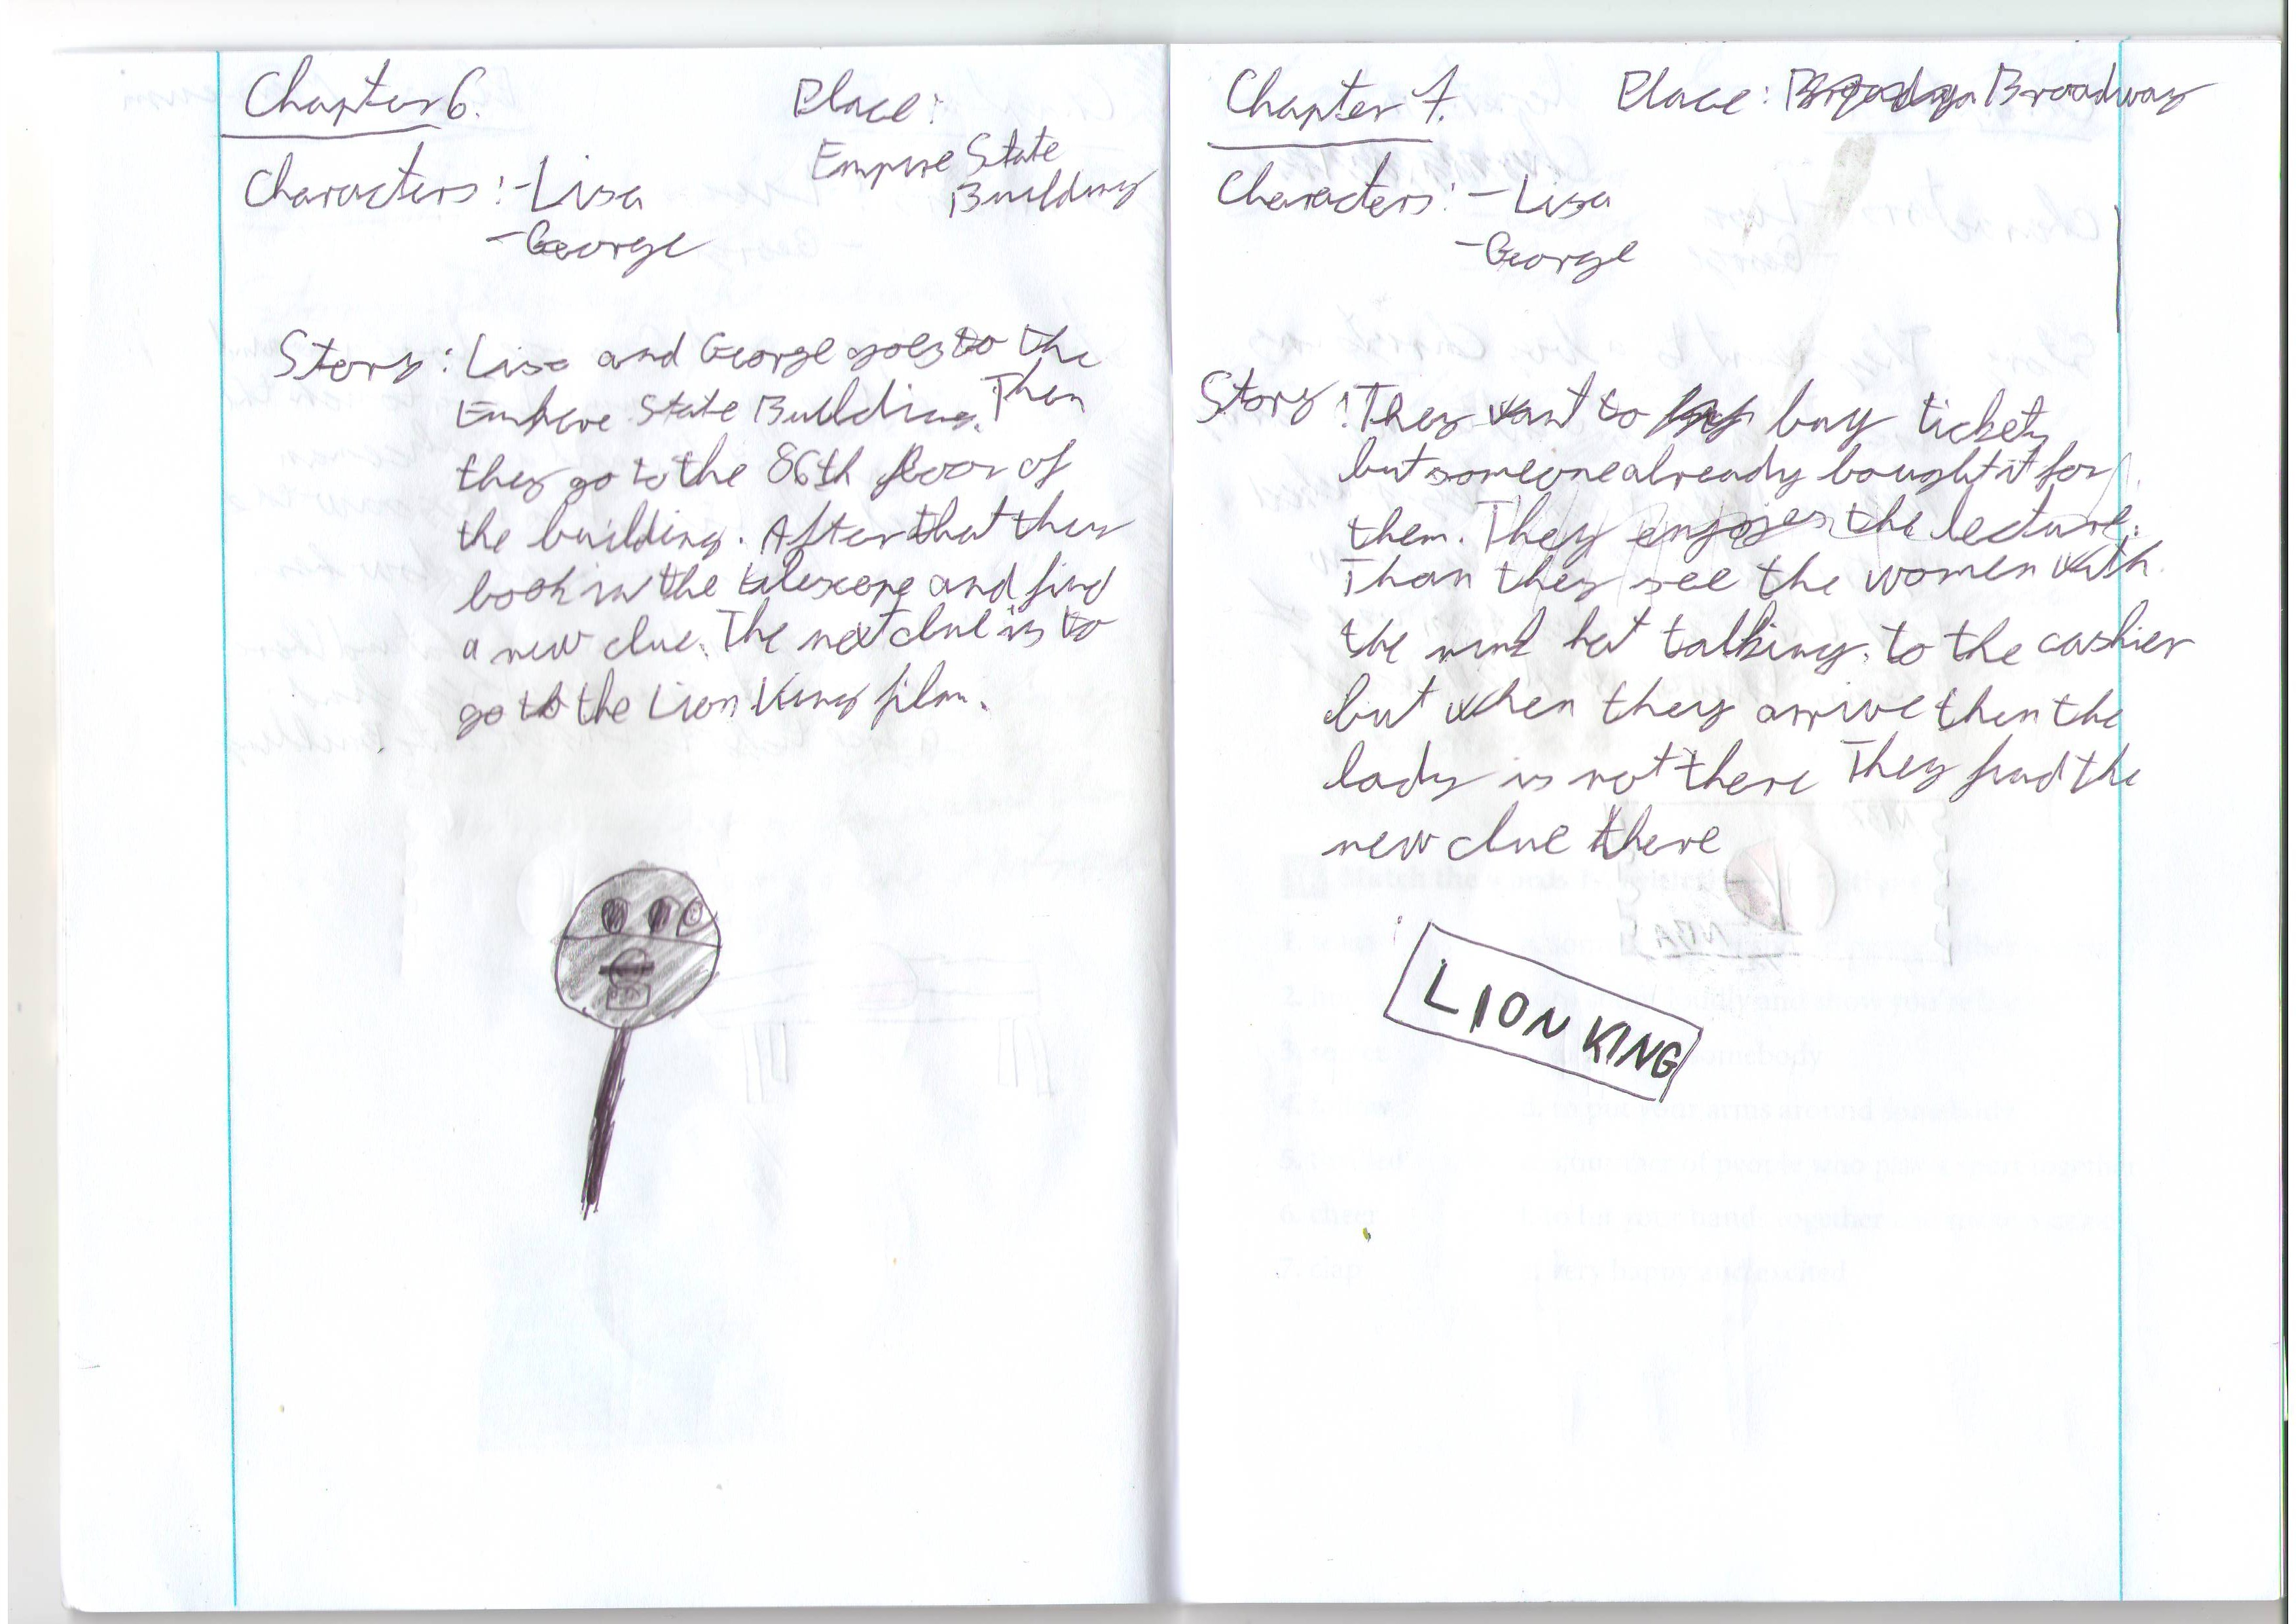 Chapter 6.
Place:
Empire State
Building
Characters: - Lisa
- George
Story: Lisa and George goes to the
Empire State Building. Then
they go to the 86th floor of
the building. After that they
look in the telescope and find
a new clue. The next clue is to
go to the Lion King film.
Chapter 7.
Place: Broadway
Characters: - Lisa
- George
Story: They want to buy tickets
but someone already bought it for
them. They enjoyes the lecture.
Than they see the women with
the hat talking. to the cashier
but when they arrive then the
lady is not there They find the
new clue there
LION KING